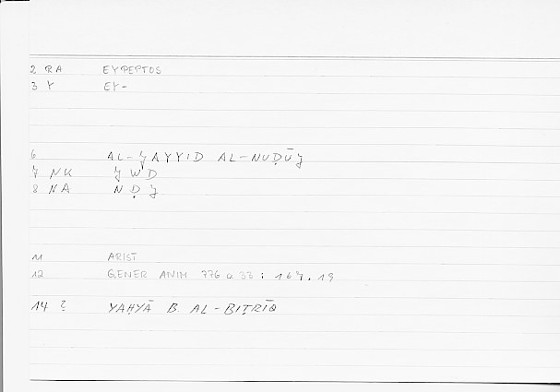 2 RA EYPEPTOS
3 Y EY-
6 AL-ǦAYYID AL-NUḌŪǦ
7 NK ǦWD
8 NA NḌǦ
11 ARIST
12 GENER ANIM 776 a 33 : 167.19
14 ? YAḤYĀ B. AL-BIṬRĪQ